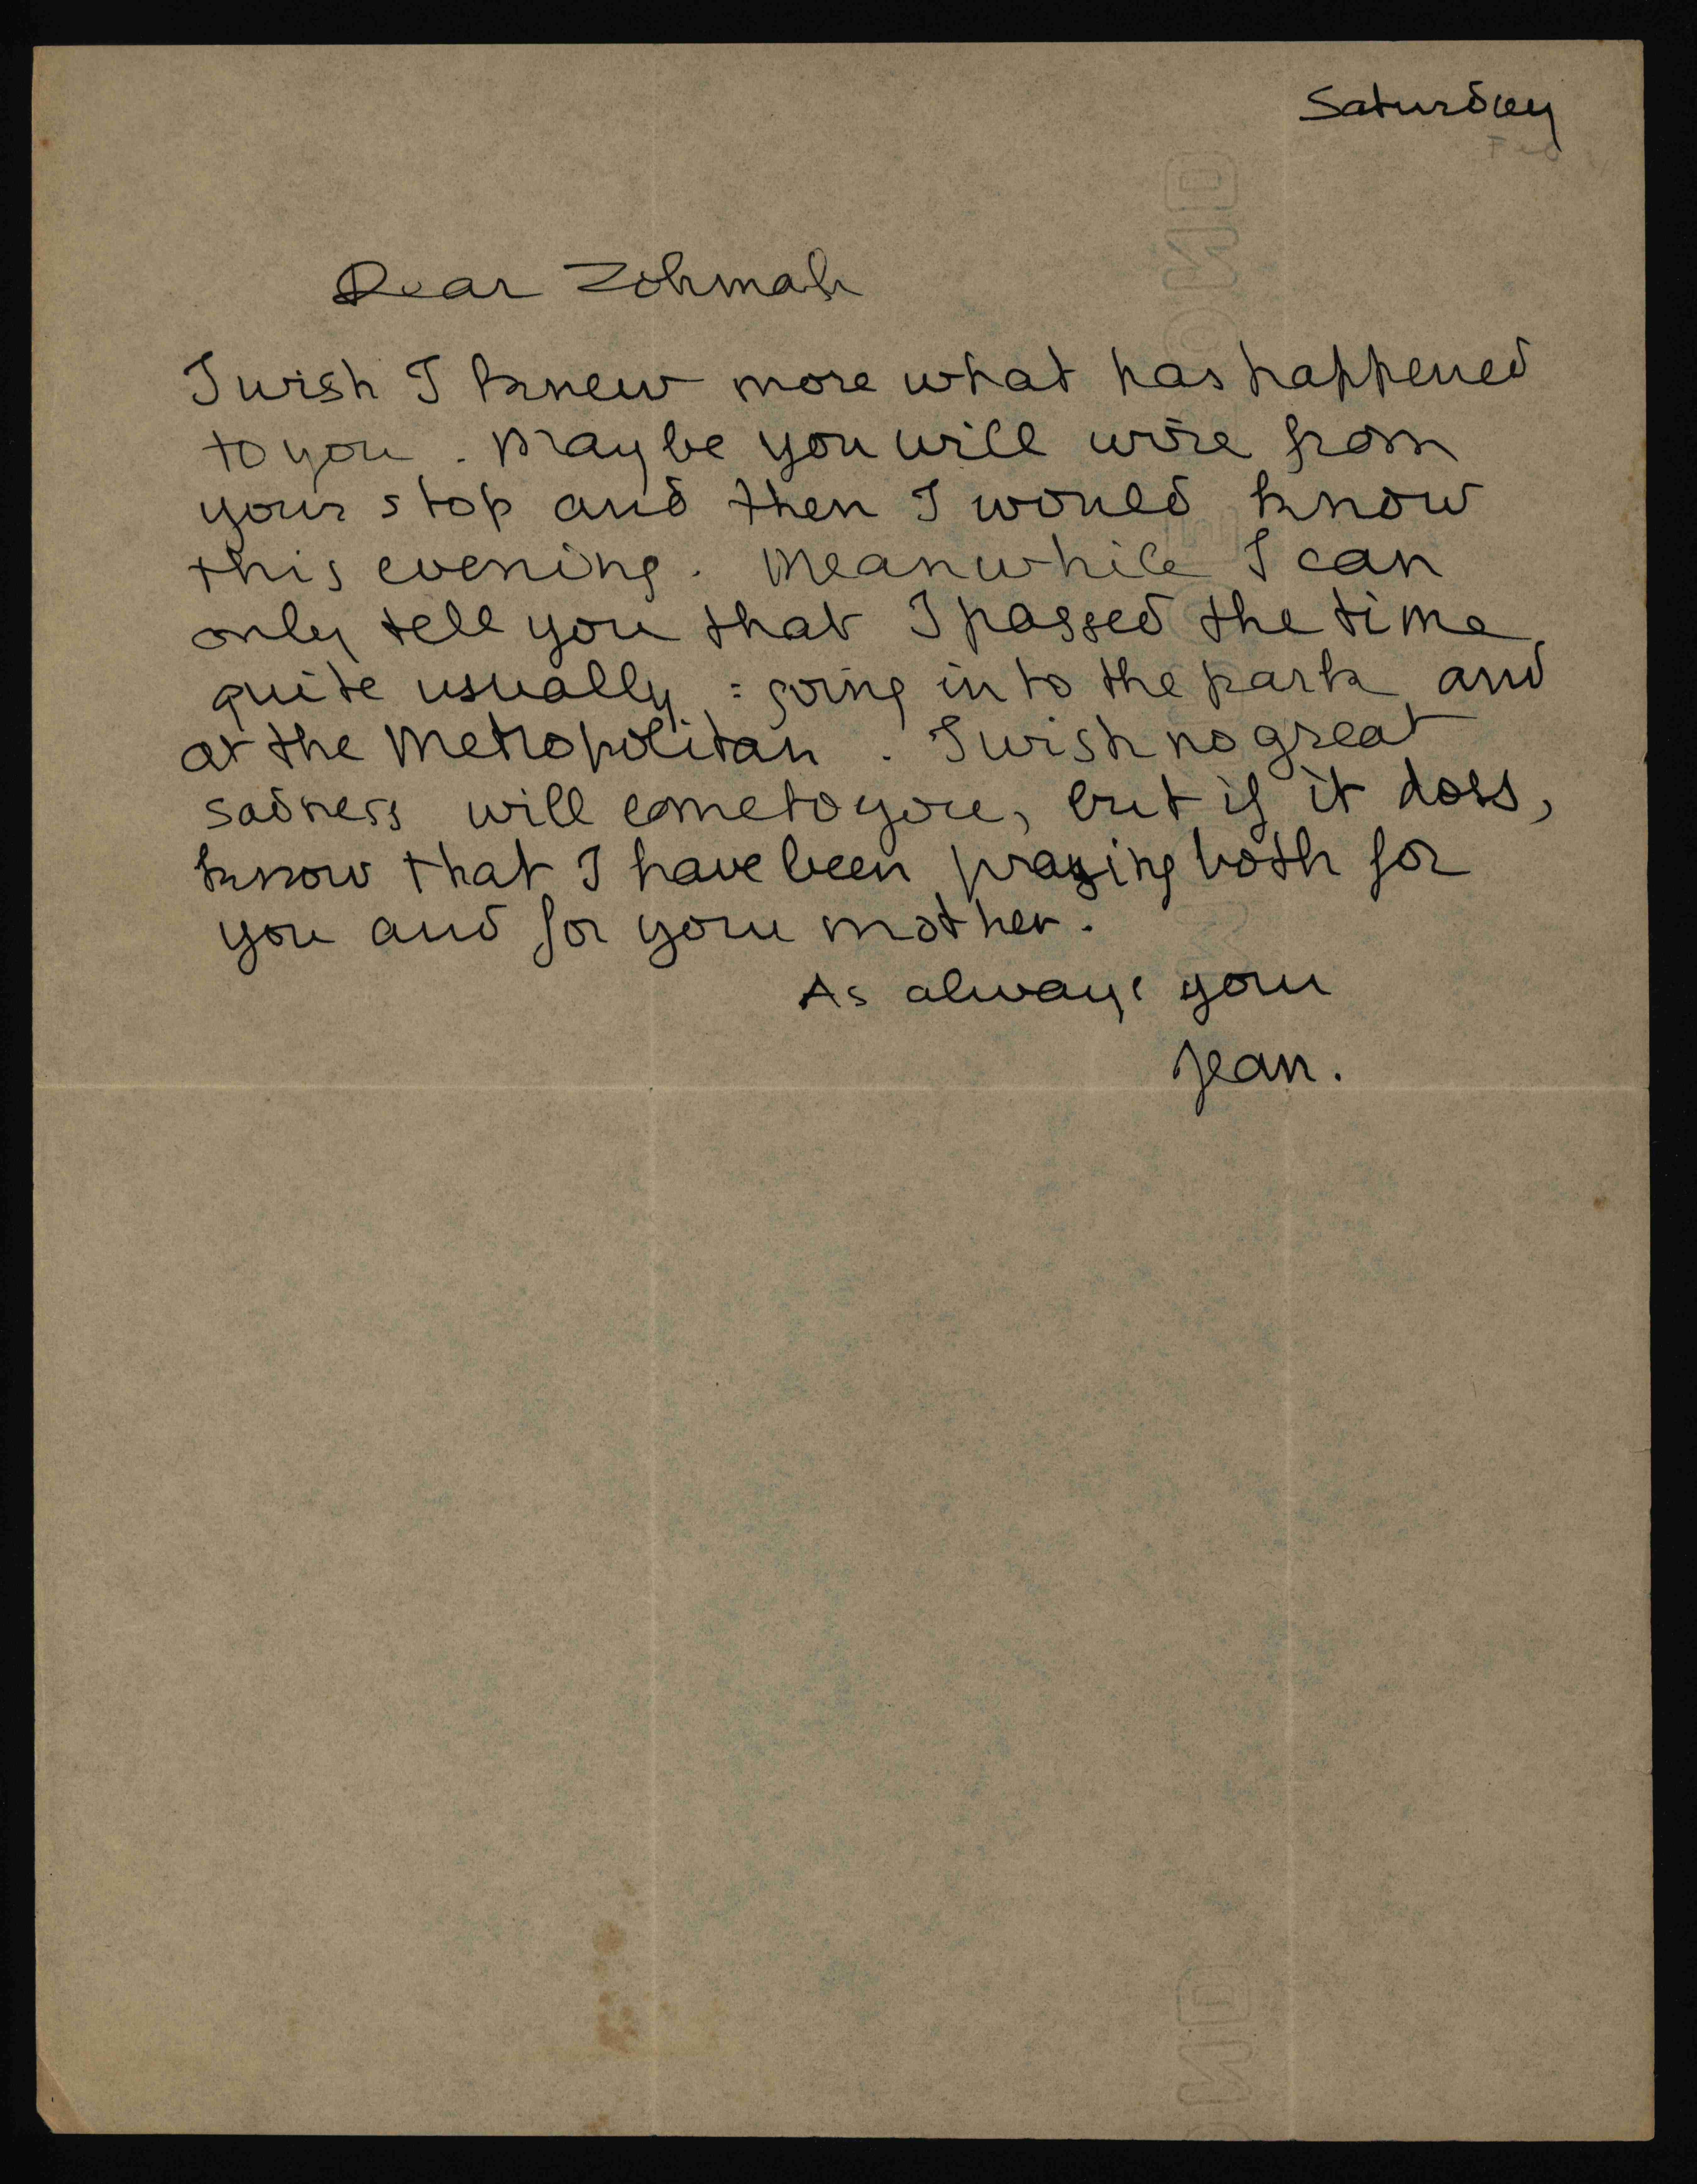 Saturday
Feb
Dear Zohmah
I wish I knew more what has happened
to you. Maybe you will wire from
your stop and then I would know
this evening. Meanwhile I can
only tell you that I passed the time
quite usually : going into the park and
at the Metropolitan. I wish no great
sadness will come to you, but if it does,
know that I have been praying both for
you and for your mother.
As always your
Jean.